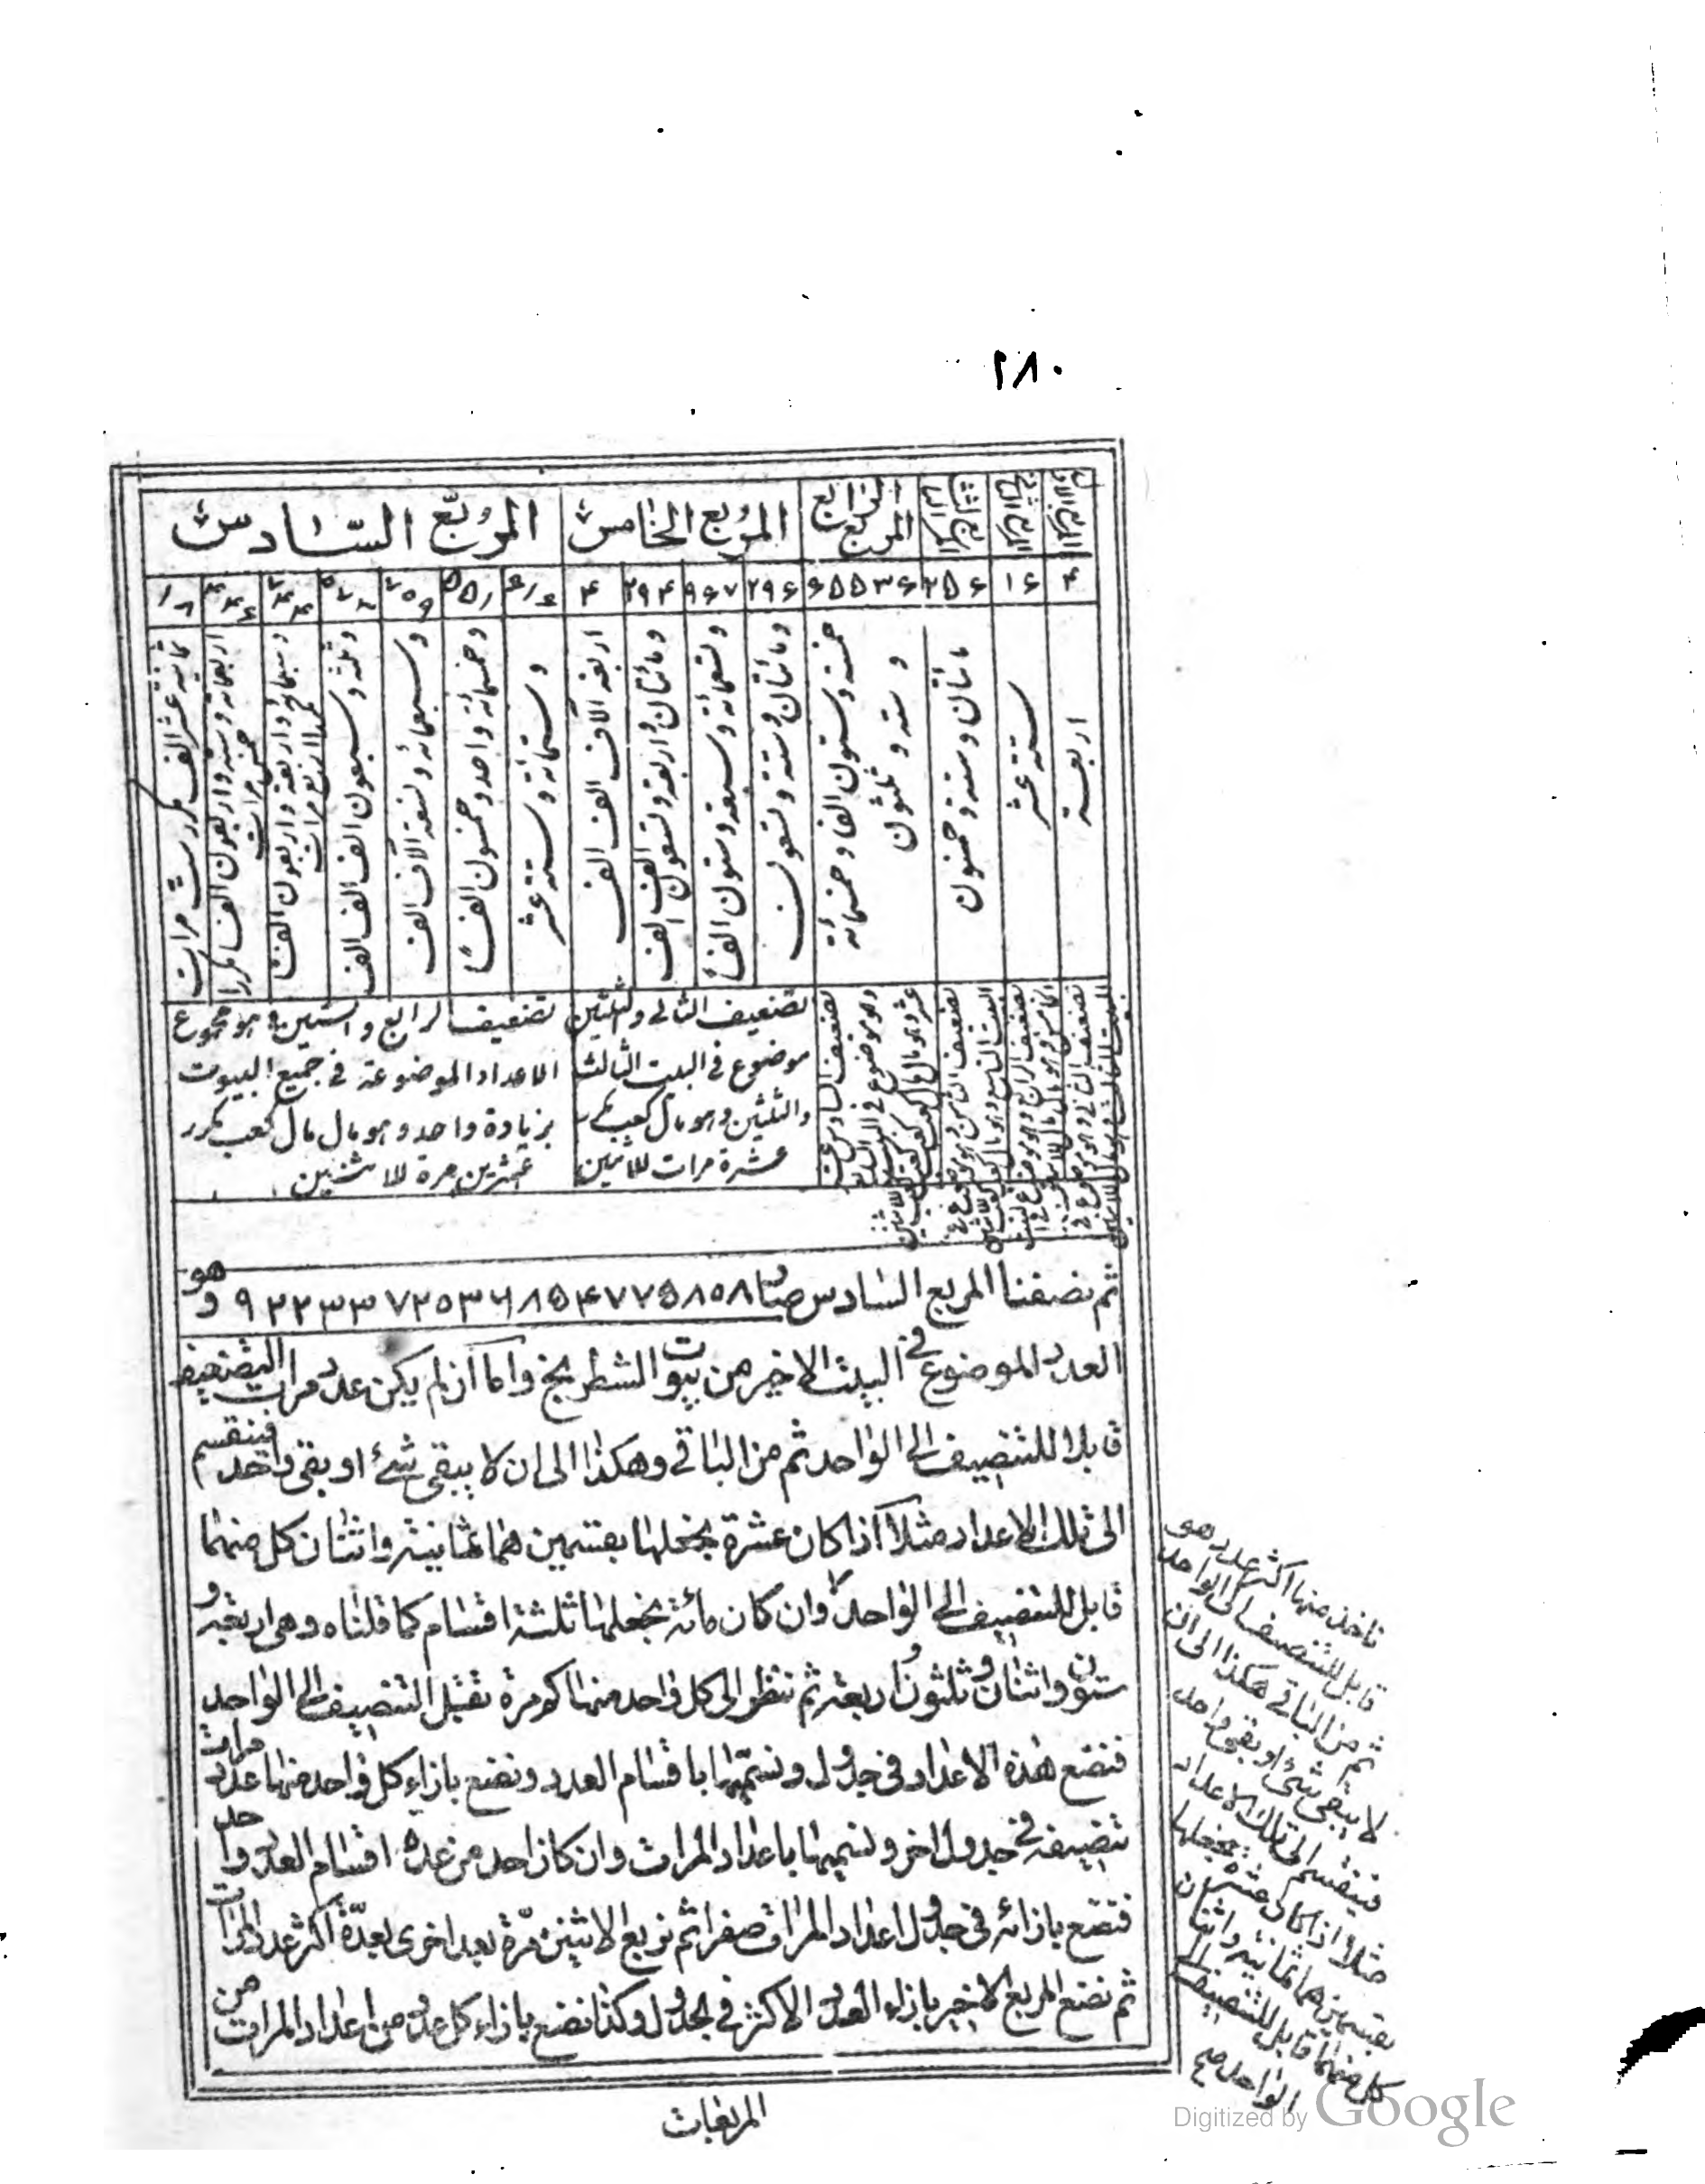 ٢٨٠
المربع الاول
المربع الثاني
المربع الثالث
المربع الرابع
المربع الخامس
المربع السّادس
۴
١۶
٢۵۶
۶۵۵٣۶
٢٩۶
٩۶٧
٢٩۴
۴
۶١۶
۵۵١
٧٠٩
٧٣
٧۴۴
۴۴۶
١٨
اربعة
ستة عشر
مائتان وستة وخمسون
خمسة وستون الفا وخمسمائة
وستة وثلثون
ومائتان وستة وتسعون
وتسعمائة وسبعة وستون الفاً
ومائتان واربعة وتسعون الف الف
اربعة آلاف الف الف
وستمائة وستة عشر
وخمسمائة واحد وخمسون الفاً
وسبعمائة وتسعة آلاف الف
وثلثة وسبعون الف الف الف
وسبعمائة واربعة واربعون الفاً مكررا اربع مرات
اربعمائة وستة واربعون الفا مكررا خمس مرات
ثمانية عشر الف مكرر ست مرات
تضعيف الثاني والثلثين
موضوع في البيت الثالث
والثلثين وهو مال كعب مكرر
عشرة مرات للاثنين
تضعيف الرابع والستين وهو مجموع
الاعداد الموضوعة في جميع البيوت
بزيادة واحد وهو مال مال كعب مكرر
عشرين مرة للاثنين
ثم نصفنا المربع السادس صار ٩٢٢٣٣٧٢٠٣٦٨۵۴٧٧۵٨٠٨ وهو
العدد الموضوع في البيت الاخير من بيوت الشطرنج واما ان لم يكن عدد مرات التضعيف
قابلا للتنصيف الى الواحد ثم من الباقي وهكذا الى ان لا يبقى شئ او بقى واحد فينقسم
الى تلك الاعداد مثلا اذا كان عشرة نجعلها بقسمين هما ثمانية واثنان كل منهما
قابل للتنصيف الى الواحد وان كان مائة نجعلها ثلثة اقسام كما قلناه وهي اربعة و
ستون واثنان وثلثون واربعة ثم ننظر الى كل واحد منها كم مرة تقبل التنصيف الى الواحد
فنضع هذه الاعداد في جدول ونسمّيها باقسام العدد ونضع بازاء كل واحد منها عدد مرات
تنصيفه في جدول اخر ونسميها باعداد المرات وان كان احد من عدد اقسام العدد واحد
فنضع بازائه في جدول اعداد المرات صفرا ثم نربع الاثنين مرّة بعد اخرى بعدّة اكثر عدد المرات
ثم نضع المربع الاخير بازاء العدد الاكثر في الجدول وكذا نضع بازاء كل عدد من اعداد المرات من
المربعات
ناخذ منها اكثر عدد هو
قابل للتنصيف الى الواحد
ثم من الباقي هكذا الى ان
لا يبقى شئ او بقى واحد
فينقسم الى تلك الاعداد
مثلا اذا كان عشرة نجعلها
بقسمين هما ثمانية واثنان
كل منهما قابل للتنصيف الى
الواحد صح
Digitized by Google